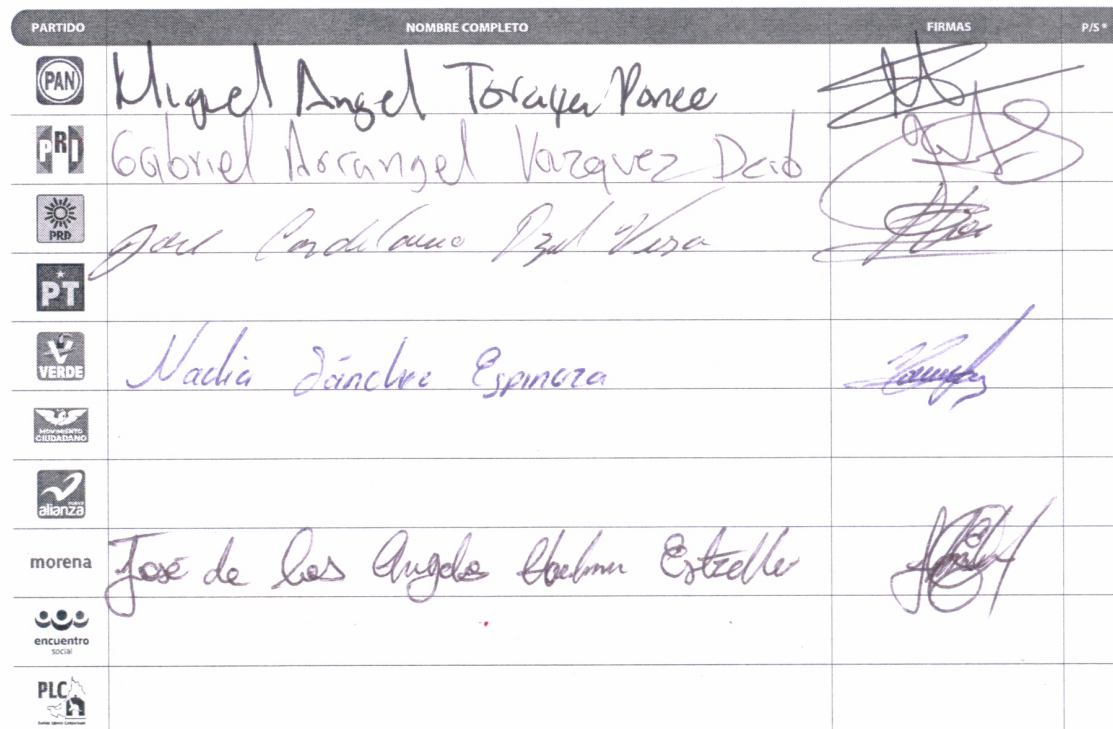 PARTIDO NOMBRE COMPLETO FIRMAS P/S*
PAN Miguel Angel Toraya Ponce
PRI Gabriel Arcangel Vazquez
PRD Vera
PT
VERDE Nadia Sánchez Espinoza
MOVIMIENTO CIUDADANO
nueva alianza
morena José de los Angeles Estrella
encuentro social
PLC